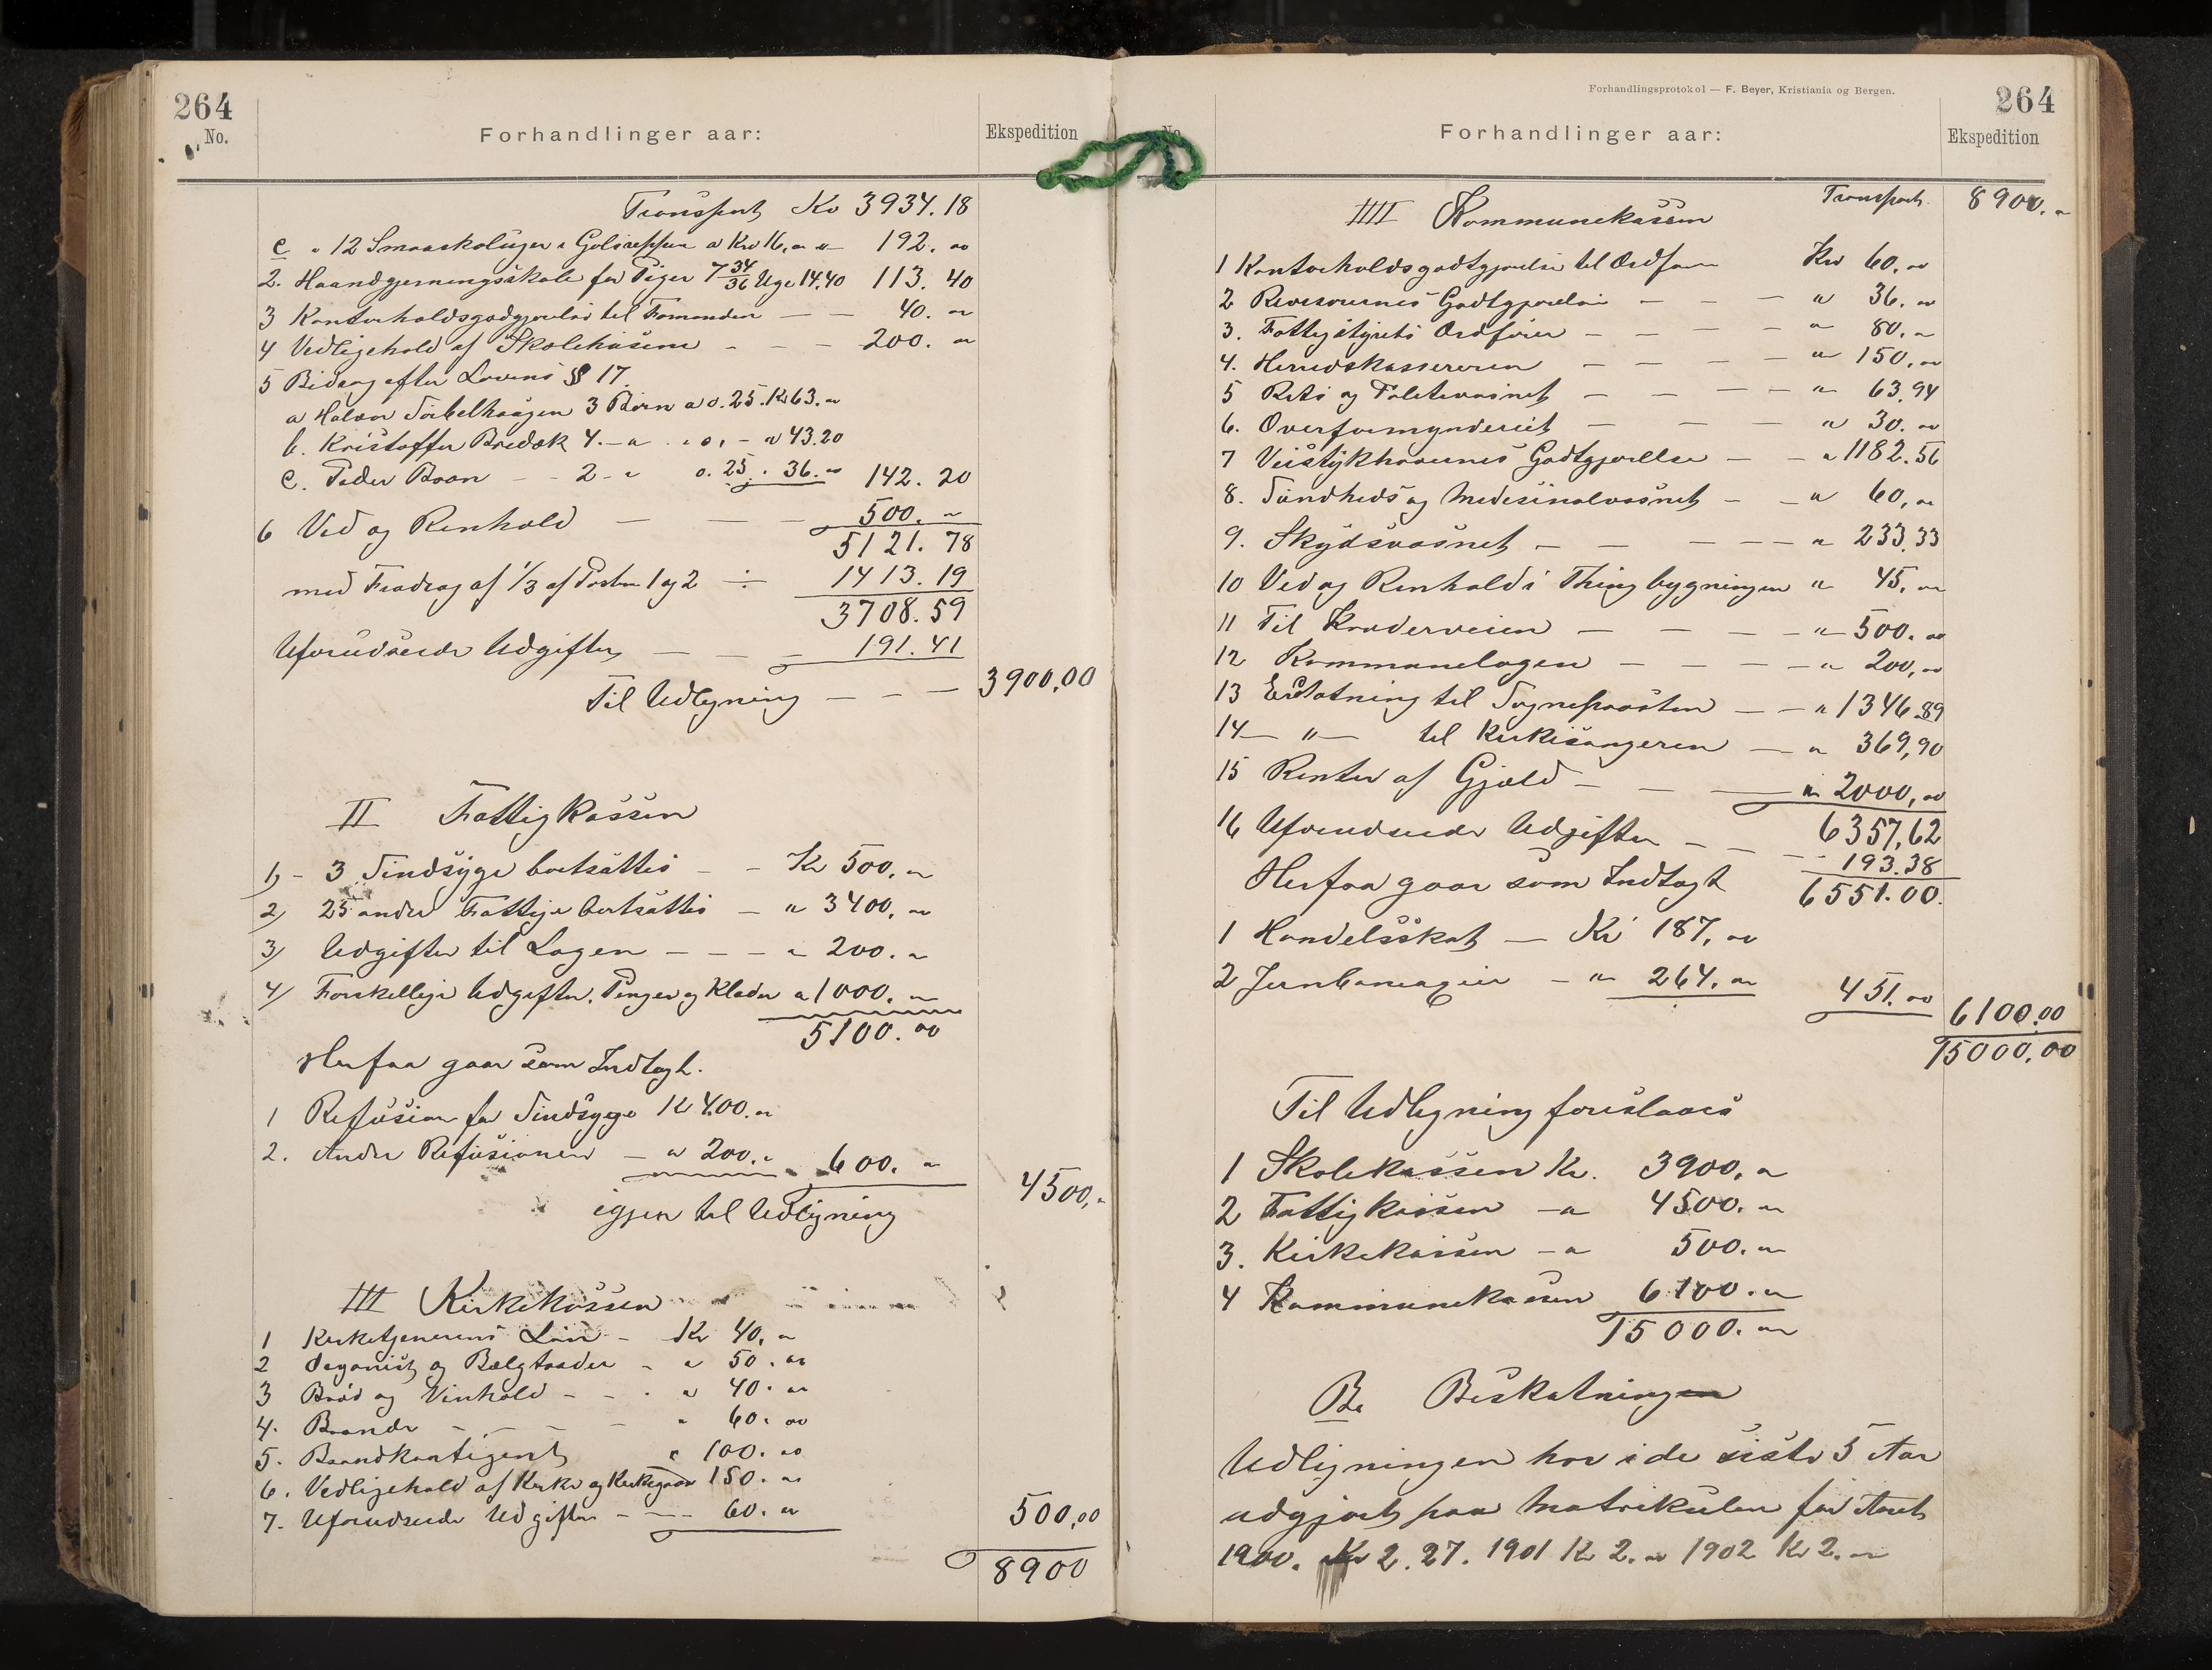 264
No.
Forhandlinger aar:
Ekspedition
Transport Kr 3934.18
c. " 12 Smaaskoleuger i Golsreppen a Kr 16, " 192. 00
2. Haandgjerningsskole for Piger 7 34/36 Uge 14.40 113. 40
3 Kontorholdsgodgjørelse til Formanden — — 40. "
4 Vedligehold af Skolehusene - - - 200. "
5 Bidrag efter Lovens § 17.
a Halvor 3 Børn a o. 25. Kr 63. "
b. Kristoffer Bredæk 4. — " 43.20
c. Peder Boon - - 2 - " o. 25. 36. " 142. 20
6 Ved og Renhold — — — 500. "
5121. 78
med Fradrag af 1/3 af Posten 1 og 2 ÷ 1413. 19
3708.59
Uforudseede Udgifter — — — 191.41
Til Udligning — — — 3900,00
II Fattigkassen
1) - 3 Sindsyge bortsættes - - Kr 500, "
2) 25 andre Fattige bortsættes — " 3400, "
3) Udgifter til Lægen — — — " 200. "
4) Forskellige Udgifter, Penger og Klæder " 1000. "
5100. 00
Herfra gaar som Indtægt.
1 Refusion for Sindsyge Kr 400. "
2. Andre Refusioner — " 200. " 600. "
igjen til Udligning 4500, "
III Kirkekassen
1 Kirketjenerens Løn - Kr 40. "
2 Organist og Bælgtræder - " 50. "
3 Brød og Vinhold - - . " 40. "
4. Brænde - - - - " 60. "
5. Brandkontigent " 100. "
6. Vedligehold af Kirke og Kirkegaard 150. "
7. Uforudseede Udgifter - — - 60. " 500,00
8900
Forhandlingsprotokol — F. Beyer, Kristiania og Bergen.
264
No.
Forhandlinger aar:
Ekspedition
IIII Kommunekassen Transport 8900. "
1 Kontorholdsgodtgjørelse til Ordfører Kr 60. "
2 Revisorernes Godtgjørelse — — — " 36. "
3. Fattigstyrets Ordfører — — — — " 80. "
4. Herredskassereren — — — — " 150, "
5 Rets og Politivæsnet — — — — " 63,94
6. Overformynderiet — — — " 30. "
7 Veistykhavernes Godtgjørelse — — " 1182.56
8. Sundheds og Medesinalvæsnet — — " 60, "
9. Skydsvæsnet — — — — — " 233,33
10 Ved og Renhold i Thingbygningen " 45, "
11 Til Krøderveien — — — — " 500. "
12 Kommunelægen — — — — " 200, "
13 Erstatning til Sognepræsten — — " 1346.89
14 — " — til Kirkesangeren — " 369,90
15 Renter af Gjæld — — — " 2000, "
6357,62
16 Uforudseede Udgifter — — — 193.38
6551.00.
Herfra gaar som Indtægt
1 Handelsskat — Kr 187, "
2 Jernbaneagier — " 264. " 451. " 6100,00
15000,00
Til Udligning foreslaaes
1 Skolekassen Kr. 3900, "
2 Fattigkassen — " 4500. "
3. Kirkekassen — " 500. "
4 Kommunekassen 6100. "
15000. "
B. Beskatningen
Udligningen har i de siste 5 Aar
udgjort paa Matrikulen for Aaret
1900. Kr 2.27. 1901 Kr 2. " 1902 Kr 2. "